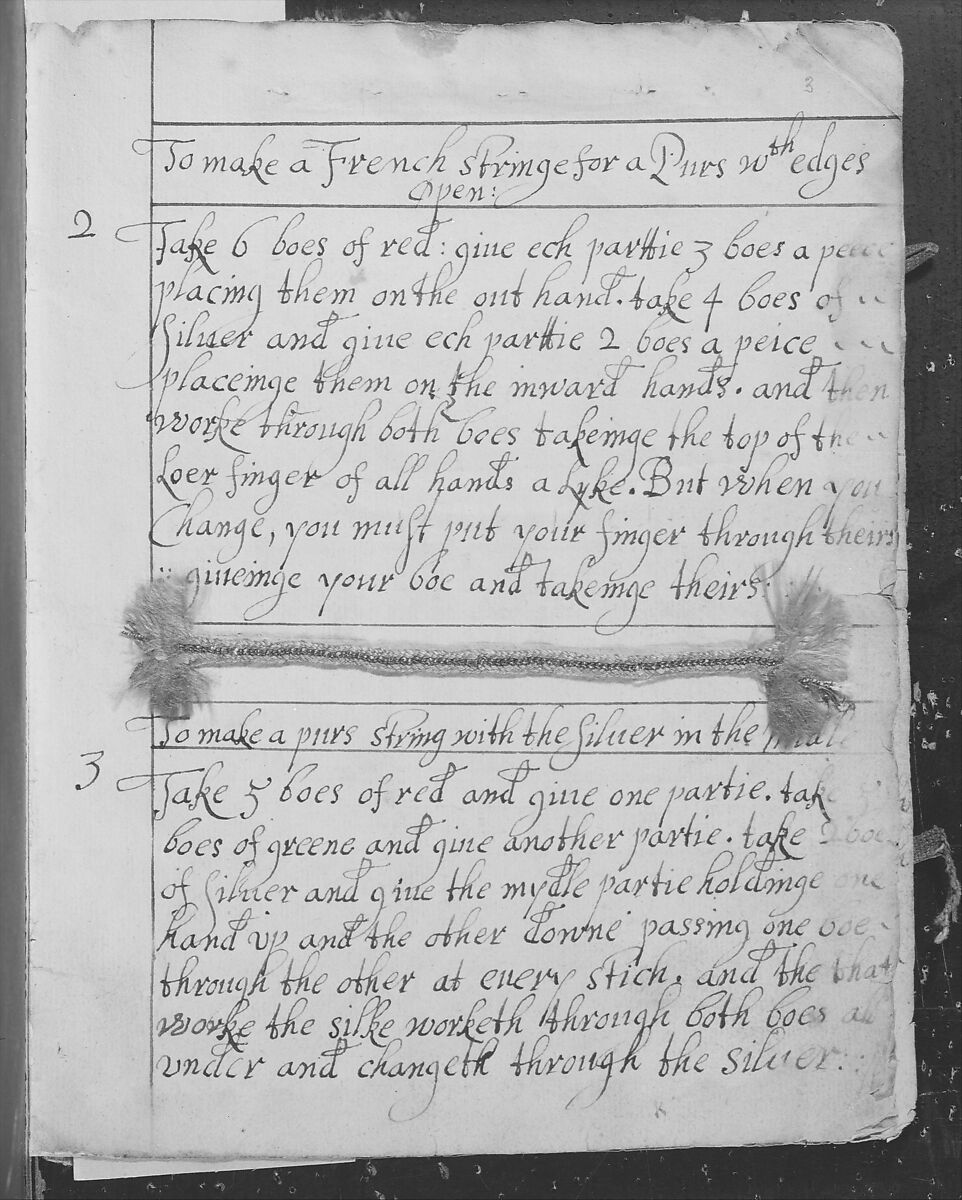 3
To make a French stringe for a Purs wth edges
Open:
2
Take 6 boes of red: giue ech parttie 3 boes a peece
placing them on the out hand. take 4 boes of
Siluer and giue ech parttie 2 boes a peice
placeinge them on the inward hands. and then
worke through both boes takeinge the top of the
Loer finger of all hands a Lyke. But when you
Change, you must put your finger through theirs
giueinge your boe and takeinge theirs
To make a purs string with the Siluer in the
3
Take 5 boes of red and giue one partie. take
boes of greene and giue another partie. take 2 boes
of Siluer and giue the mydle partie holdinge one
hand vp and the other downe passing one boe
through the other at euery stich. and the that
worke the silke worketh through both boes
vnder and changeth through the siluer: